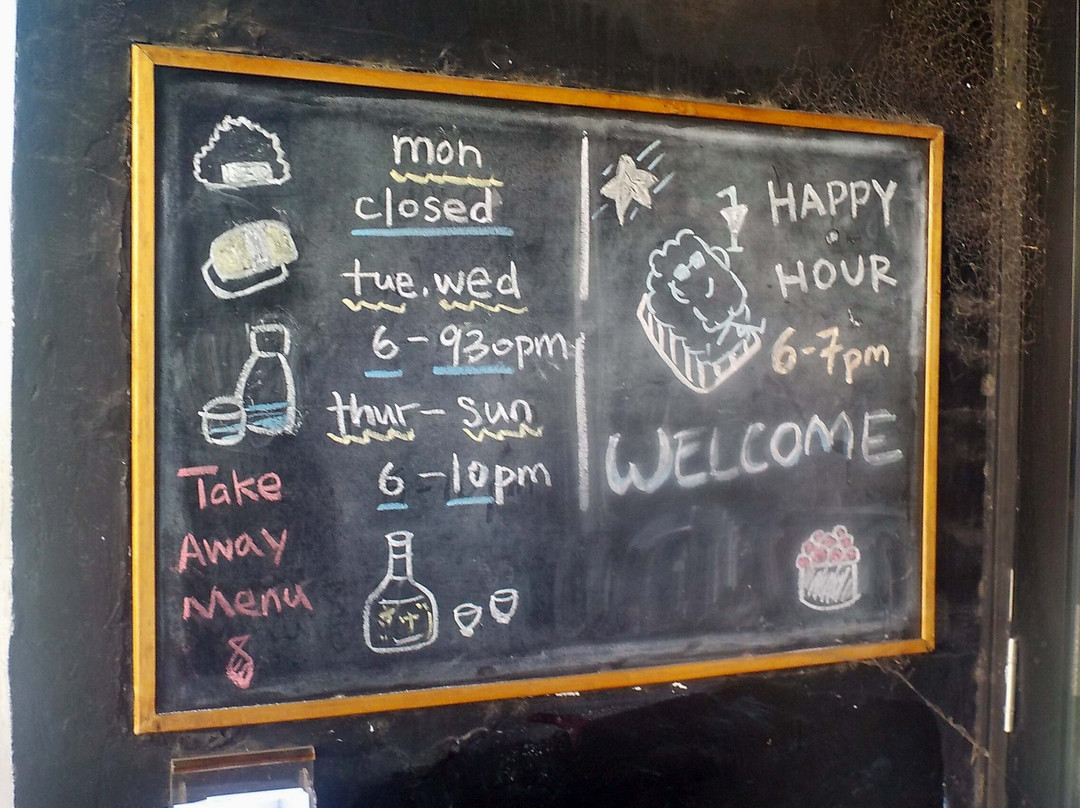 mon
closed
tue.wed
6-930pm
thur-sun
6-10pm
Take
Away
Menu
HAPPY
HOUR
6-7pm
WELCOME